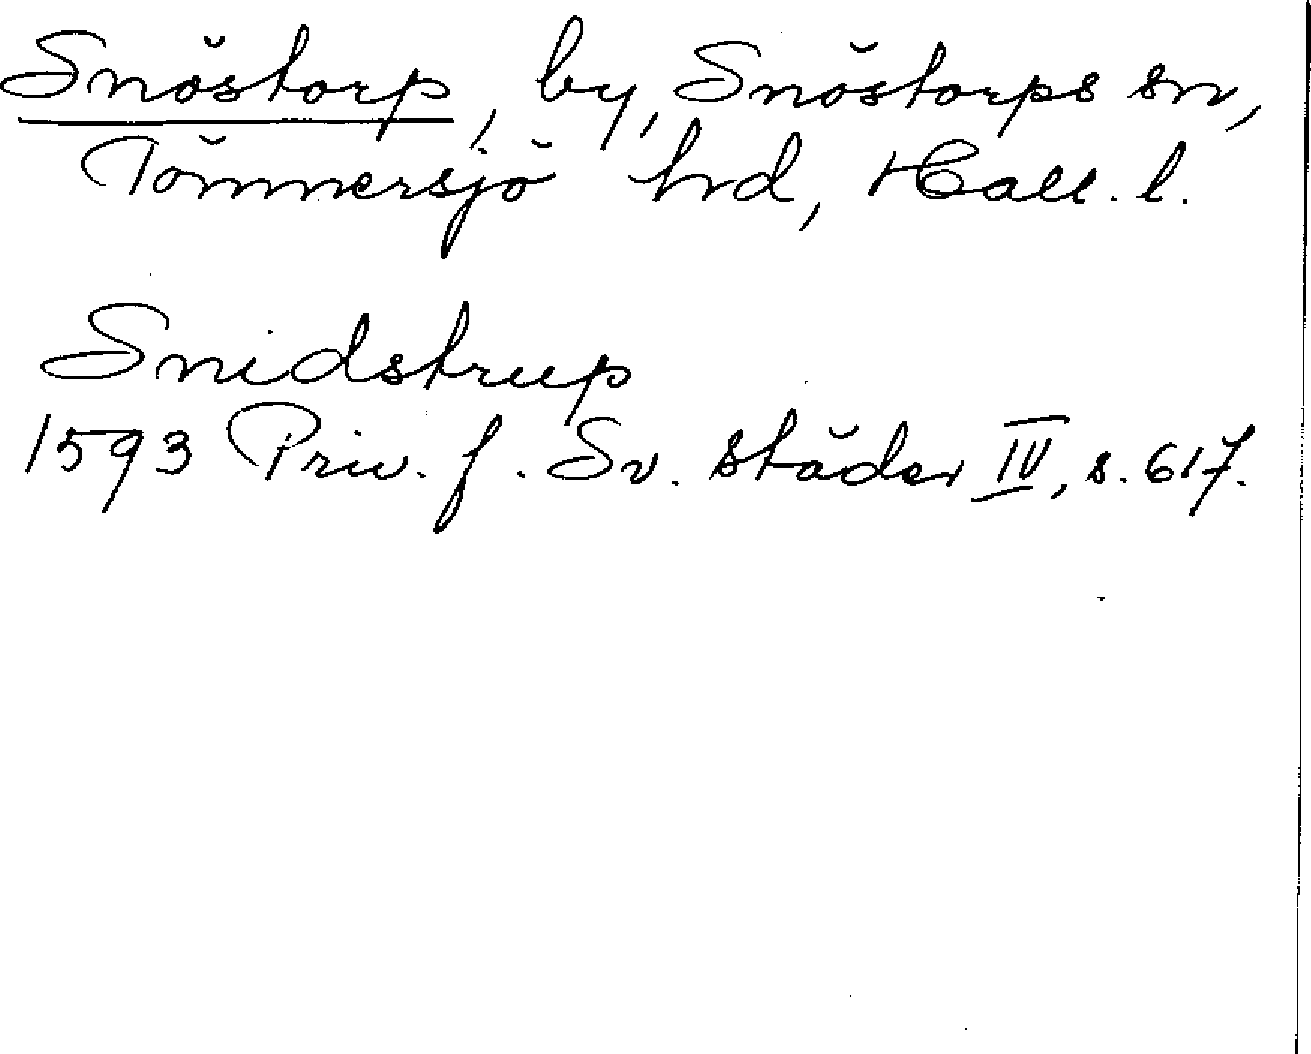 Snöstorp, by, Snöstorps sn,
Tönnersjö hrd, Hall. l.
Snidstrup
1593 Priv. f. Sv. städer IV, s. 617.